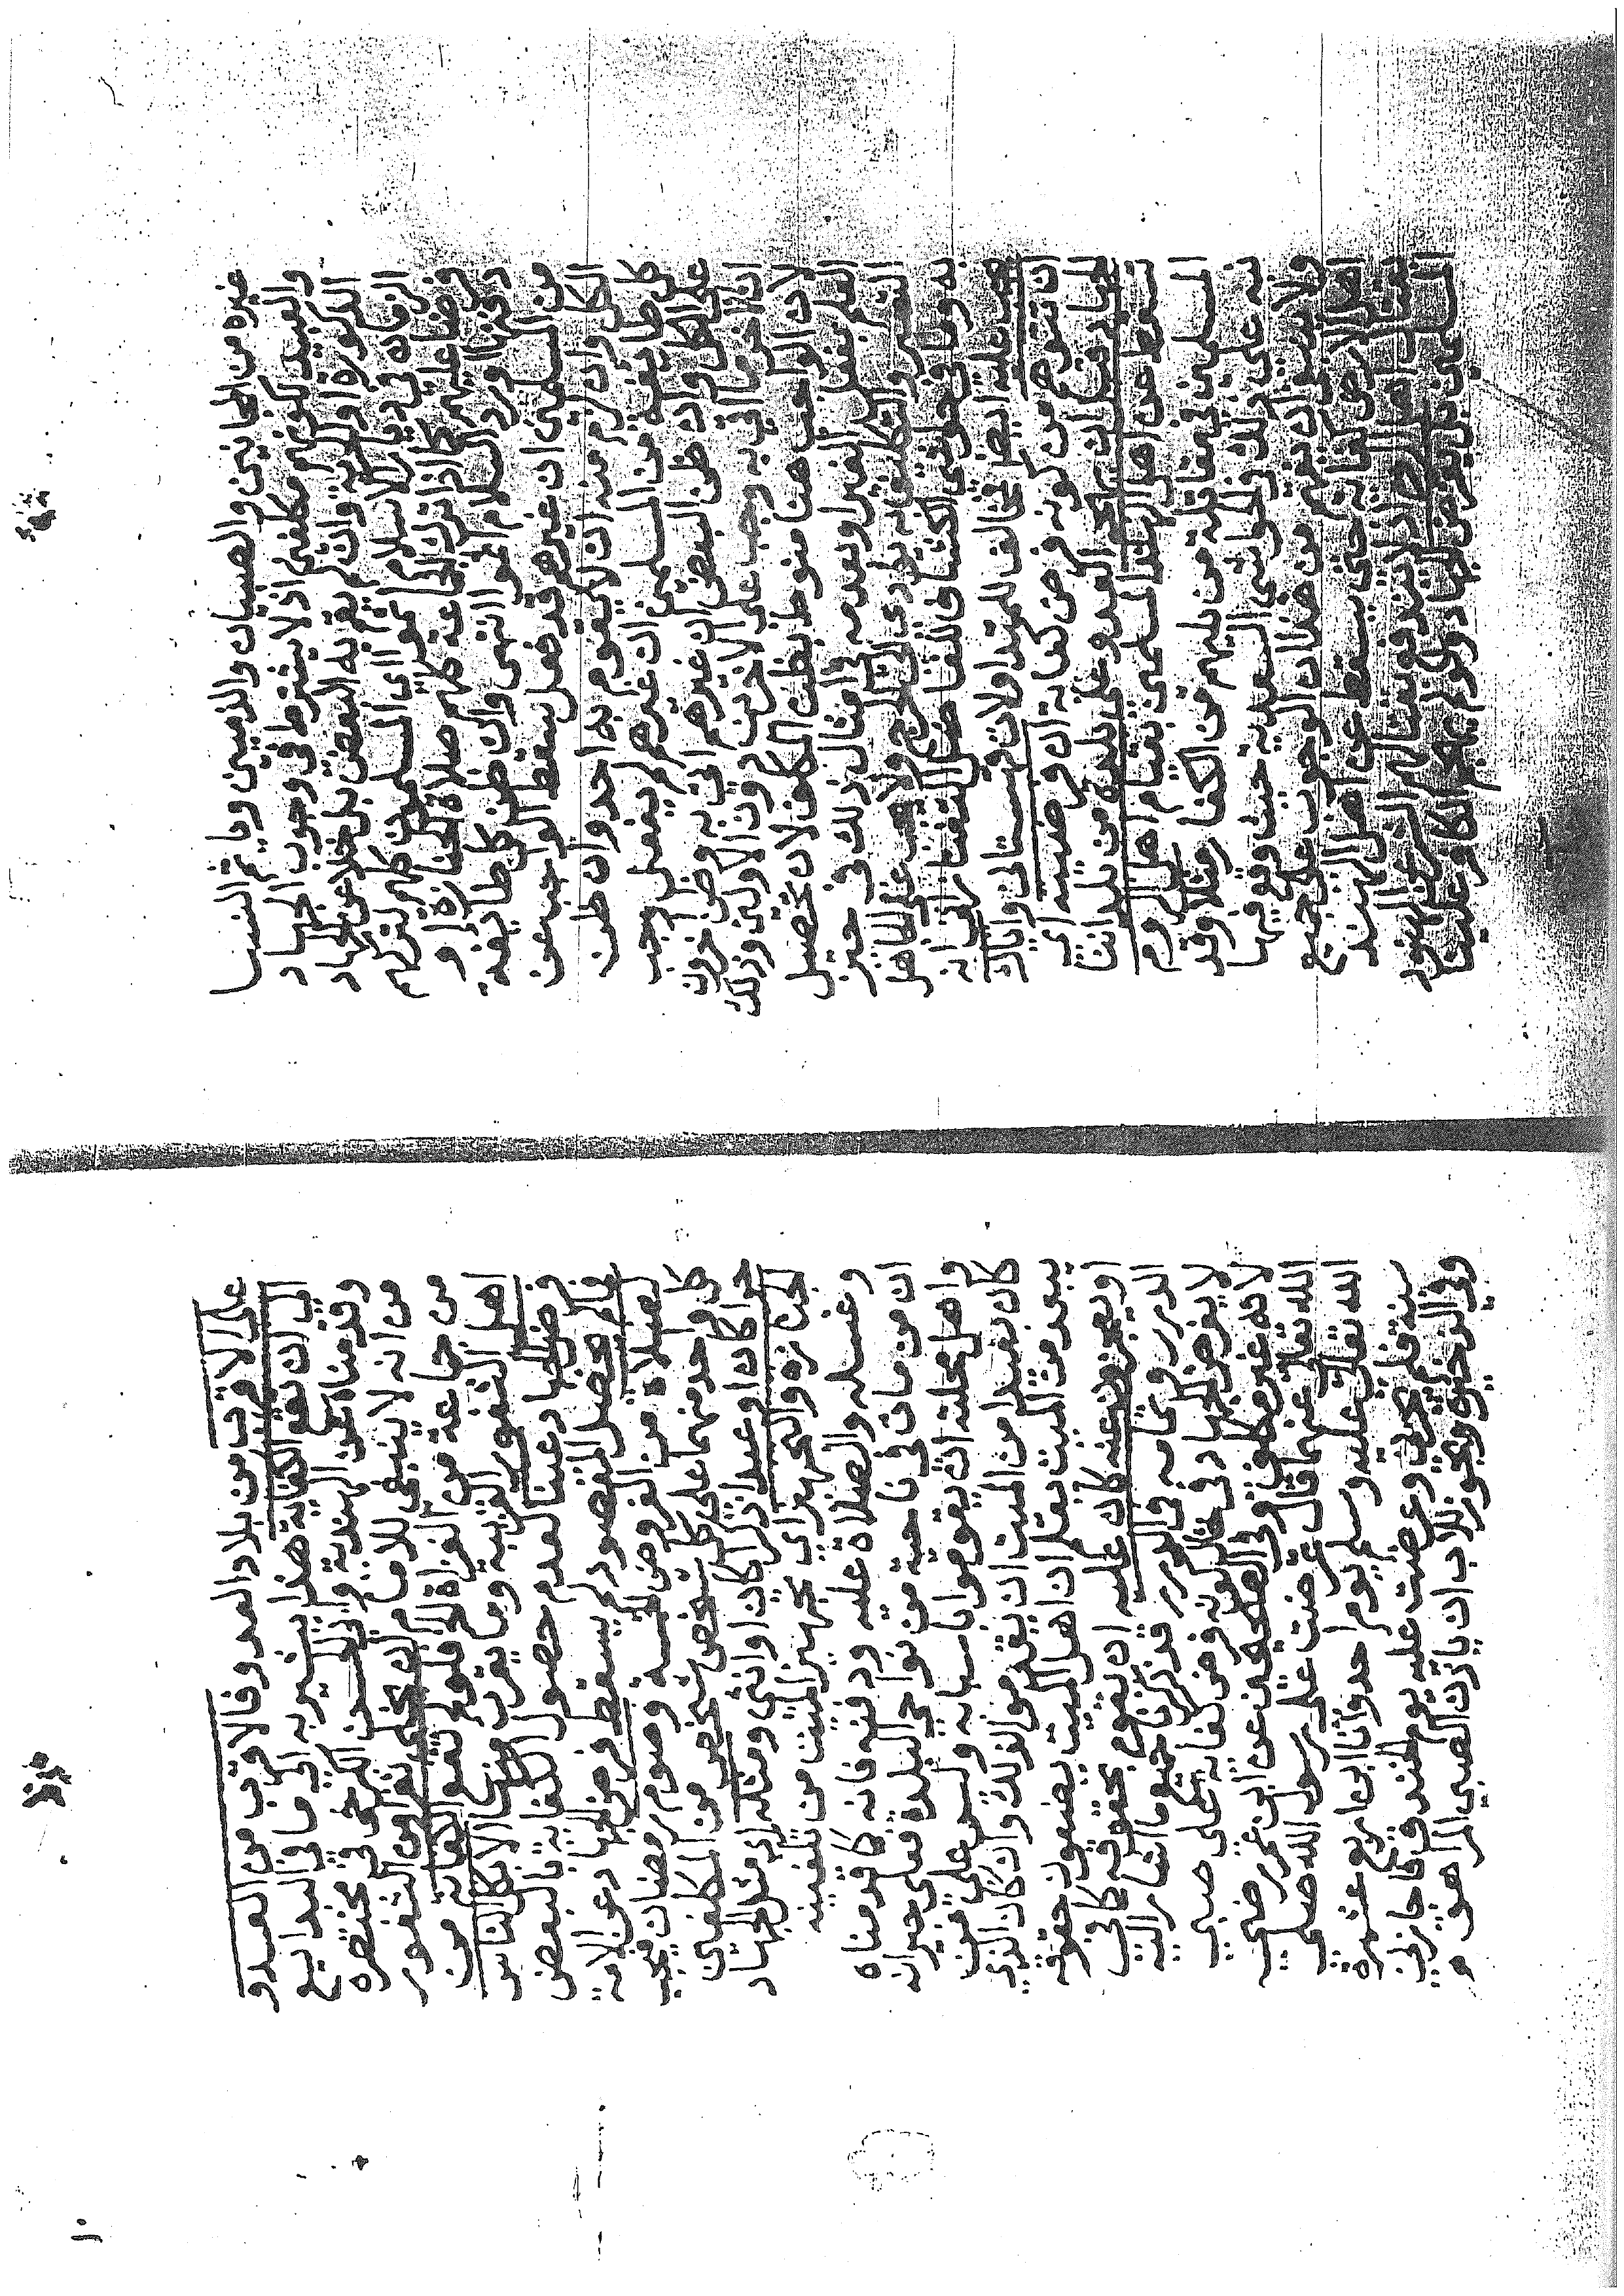 غيره من المجانين والصبيان والذميين وما ثم النسا
والعبيد لكونهم مكلفين اذ لا يشترط في وجوب الجهاد
الذكورة او الحرية وان لم يقم به البعض بل خلا عن الجهاد
الزمان في ديار الاسلام اثموا اي المسلمون كلهم بتركهم
فرضا عليهم كما اذا ترك الجماعة كلهم صلاة الجنازة او
دفنها او رد السلام اثموا انتهى وان ظن كل طايفة
من المسلمين ان غيرهم قد فعل سقط الواجب عن
الكل وان لزم منه ان لا يقوم به احد وان ظن
كل طايفة من المسلمين ان غيرهم لم يفعل وجب
على الكل وان ظن البعض ان غيرهم اتى به وظن اخرون
ان اخر ما اتى به وجب على الاخرين دون الاولين وذلك
لان الواجب هنا منوط بظن المكلف لان تحصيل
العلم بفعل الغير او بعدمه في امثال ذلك في حيز
التعسر والتكليف به يؤدي الى الحرج ولا تجب على الجاهل
به وما في حواشي الكشاف للفاضل التفتازاني انه
يجب عليه ايضا مخالف للمتداولات ثم استانف وقال
ان تتوهم من كونه فرض كفاية ان فرضيته اي
الجهاد قبل ان يهجم العدو على بلدة من بلداننا
تسقط عن اهل الهند المسلمين بقيام اهل الروم
المسلمين في مقاتلة من يليهم من الكفار مثلا وقد
نبه على ذلك في الحواشي السعدية حيث وقع فيها
ولا ينبغي ان يفهم من هذا ان الوجوب على جميع
اهل الارض كفاية حتى يسقط عن اهل الهند
بقتال اهل الروم اذ لا يندفع بقتالهم الشر عن الهنود
المسلمين بل يفرض الجهاد ولو لم يهجم الكافر علينا
على الاقرب من بلاد العدو فالاقرب من العدو
الى ان تقع الكفاية هذا يشير به الى ما في البدايع
وقد مناه عن الهندية وابو الحسن الكرخي في مختصره
من انه لا ينبغي للامام ان يخلي ثغرا من الثغور
من جماعة من الغزاة الخ فلو لم تقع الكفاية من
اهل الثغور القريبة وما يقرب منها الا بكل الناس
فرض الجهاد عينا لعدم حصول الكفاية بالبعض
فلم يحصل المقصود فلم يسقط فرض الجهاد عن الامة
كصلاة من الفروض الخمسة وصوم رمضان يجب
كل واحد منهما على كل شخص شخص من المكلفين
حرا كان او عبدا ذكرا كان او انثى ومثله اي مثل الجهاد
الجنازة والتجهيز اي تجهيز الميت من تكفينه
وغسله والصلاة عليه ودفنه فانه كما قدمناه
ان من مات في ناحية من نواحي البلدة فعلى جيرانه
واهل محلته ان يقوموا باسبابه وليس على من
كان ببعد من الميت ان يقدموا لذلك وان كان الذي
يبعد من الميت يعلم ان اهل الميت يضيعون حقوقه
او يعجزون عنه كان عليه ان يقوم بحقوقه كما في
الدرر وتمامه في الدرر قد ذكرنا جميع ما اشار اليه
لا يفرض الجهاد في حال كونه فرض كفاية على صبي
لانه غير مكلف وفي الصحيحين عن ابن عمر رضي
الله تعالى عنهما قال عرضت على رسول الله صلى
الله تعالى عليه وسلم يوم احد وانا ابن اربع عشرة
سنة فلم يجزني وعرضت عليه يوم الخندق فاجازني
وفي الذخيرة ويجوز للاب ان ياذن للصبي المراهق و